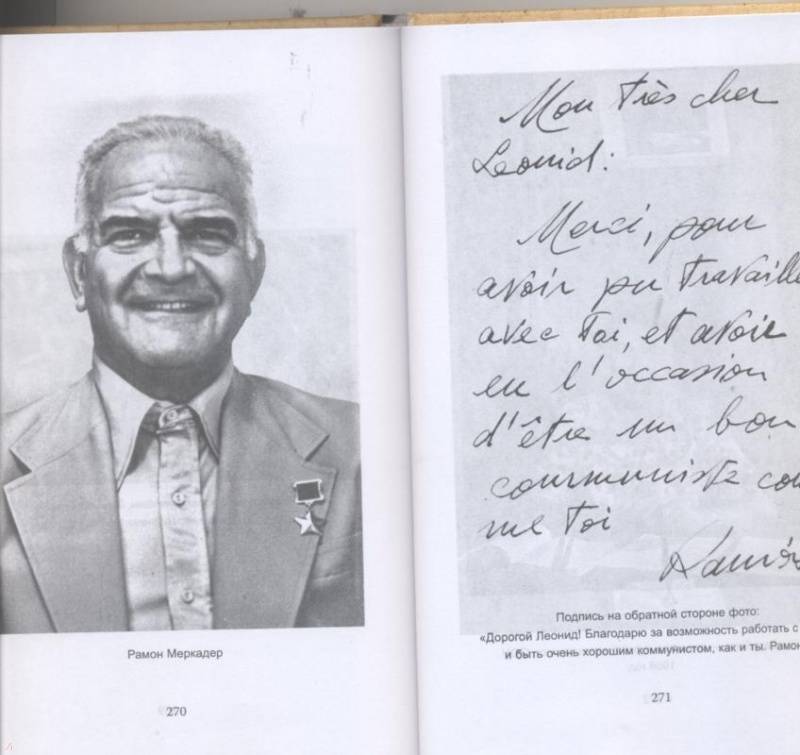 Рамон Меркадер
270
Mon très cher
Leonid:
Merci, pour
avoir pu travaille
avec toi, et avoir
eu l'occasion
d'être un bon
communiste com
me toi
Ramón
Подпись на обратной стороне фото:
«Дорогой Леонид! Благодарю за возможность работать с
и быть очень хорошим коммунистом, как и ты. Рамон
271